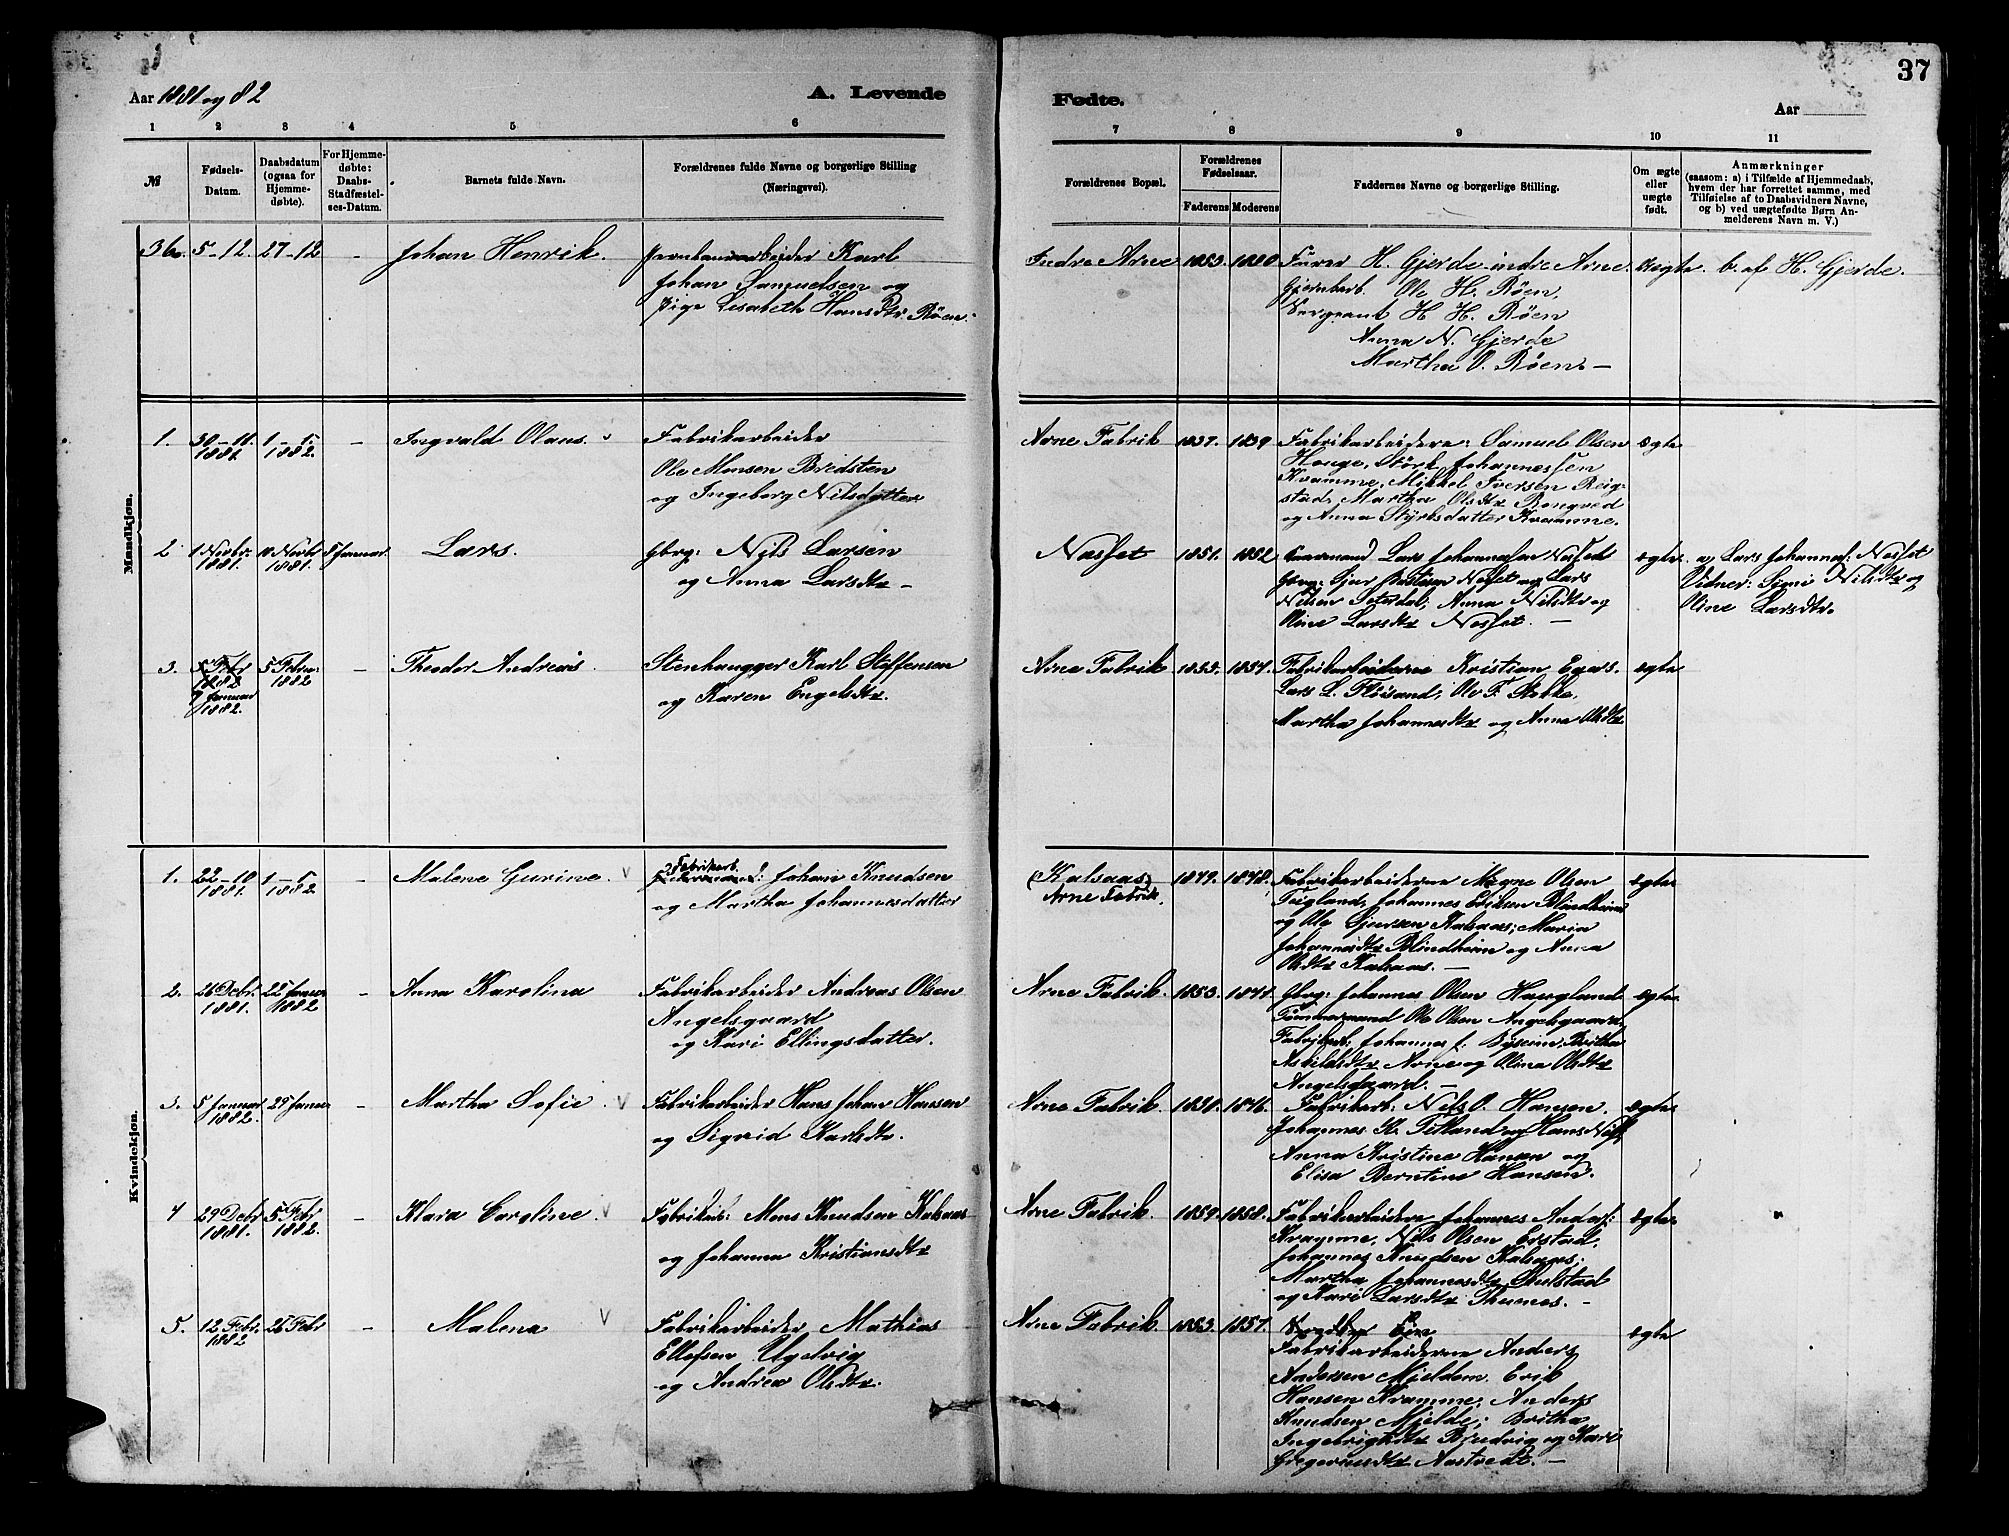 37
Aar 1881 og 82
A. Levende
Fødte.
Aar
1 2 3 4 5 6 7 8 9 10 11
№
Fødsels-
Datum.
Daabsdatum
(ogsaa for
Hjemme-
døbte).
For Hjemme-
døbte:
Daabs-
Stadfæstel-
ses-Datum.
Barnets fulde Navn.
Forældrenes fulde Navne og borgerlige Stilling
(Næringsvei).
Forældrenes Bopæl.
Forældrenes
Fødselsaar.
Faderens Moderens
Faddernes Navne og borgerlige Stilling.
Om ægte
eller
uægte
født.
Anmærkninger
(saasom: a) i Tilfælde af Hjemmedaab,
hvem der har forrettet samme, med
Tilføielse af to Daabsvidners Navne,
og b) ved uægtefødte Børn An-
melderens Navn m. V.)
Mandkjøn.
36. 5-12. 27-12 - Johan Henrik.
Karl
Johan Samuelsen og
Pige Lisabeth Hansdtr. Røen.
Indre Arne 1853. 1860.
Furer H. Gjerde indre Arne.
Ole H. Røen,
Sergeant H H. Røen
Anna N. Gjerde
Martha O. Røen. -
uægte b. af H. Gjerde.
1. 30-11. 1-1.
1881. 1882.
- Ingvald Olaus.
Fabrikarbeider
Ole Monsen Bredsten
og Ingeborg Nilsdatter
Arne Fabrik 1837. 1839.
Fabrikarbeidere: Samuel Olsen
Houge, Størk Johannessen
Kvamme, Mikkel Iversen Reig-
stad, Martha Olsdtr
og Anna Styrksdatter Kvamme.
ægte
2 1 Novbr. 10 Novbr 8 Januar
1881. 1881.
Lars.
Gbrg: Nils Larsen
og Anna Larsdtr -
Nesset 1851. 1852
Lars Johannessen Nesset
Gbrg: Nesset og Lars
Nilsen Seterdal; Anna Nilsdtr og
Oline Larsdtr Nesset. -
ægte.
a, Lars Johannes: Nesset
Vidner: Nilsdtr og
Oline Larsdtr.
3. 5 Febr 5 Febru:
1882 1882
9 Januar
1882.
- Theodor Andreas.
Stenhugger Karl Steffensen
og Karen Engelsdtr.
Arne Fabrik 1855. 1854.
Fabrikarbeiderne Kristian
Lars L. Fløisand, Ole F.
Martha Johannesdtr og Anna Olsdtr
ægte
Kvindekjøn.
1. 22-10 1-1
1881. 1882.
Malene Gurine. v
Fabrikarb.
Johan Knudsen
og Martha Johannesdatter
(Kalsaas)
Arne Fabrik.
1849. 1848.
Fabrikarbeiderne Magne Olsen
Teigland, Johannes Eriksen Blindheim
og Ole Sjursen Kalsaas; Maria
Johannesdtr Blindheim og Anna
Olsdtr Kalsaas. -
ægte
2. 26 Debr. 22 Januar
1881. 1882
- Anna Karolina
Fabrikarbeider Andreas Olsen
Angelsgaard
og Kari Ellingsdatter.
Arne Fabrik. 1853. 1844.
Gbrg: Johannes Olsen Haugland
Tømmermand Ole Olsen Angelsgaard
Fabrikarb: Johannes J: Britha
Askildsdtr Arne og Olina Olsdtr
Angelsgaard. -
ægte
3. 5 Januar 29 Januar
1882.
- Martha Sofie v
Fabrikarbeider Hans Johan Hansen
og Sigrid Karlsdtr.
Arne Fabrik. 1846.
Fabrikarb: Nils O. Hansen.
Johannes K. Titland og Hans
Anna Kristine Hansen og
Elisa Berntine Hansen.
ægte
4 29 Debr 5 Febr
1881. 1882.
- Klara Caroline. v
Fabrikarb: Mons Knudsen Kalsaas
og Johanna Kristiansdtr
Arne Fabrik. 1859. 1858.
Fabrikarbeidere Johannes
Kvamme, Nils Olsen
Johannes Knudsen Kalsaas;
Martha Johannesdtr
og Kari Larsdtr Thunes. -
ægte
5. 12 Febr. 26 Febr
1882
- Malena v
Fabrikarbeider Mathias
Ellefsen
og Andrea Olsdtr.
Arne Fabrik. 1853. 1857.
Fabrikarbeiderne Anders
Andersen Mjeldem Erik
Hansen Kvamme; Anders
Knudsen Mjelde; Britha
Ingebrigtsdtr og Kari
Gregoriusdtr Aastvedt. -
ægte